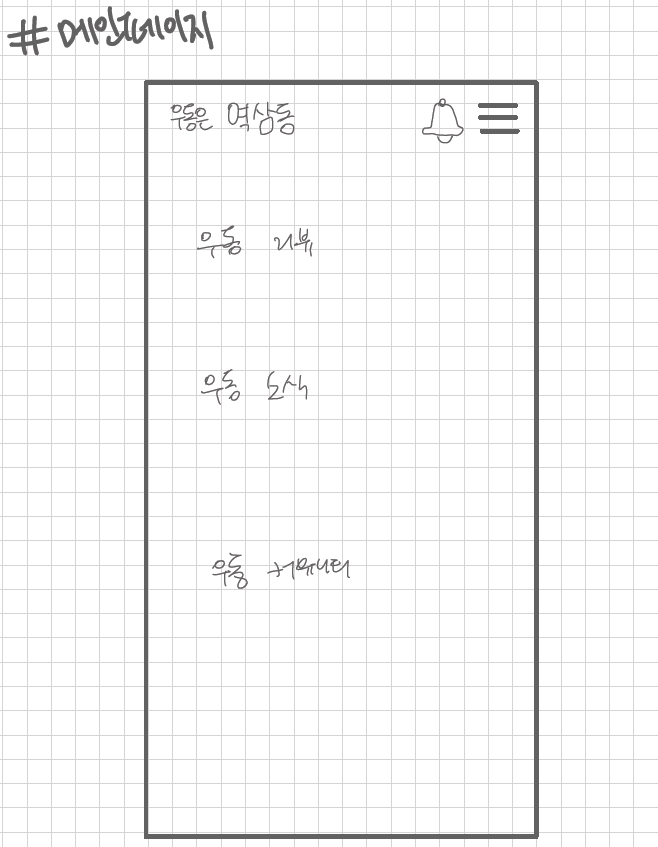 #메인페이지
우동은 역삼동
우동 리뷰
우동 소식
우동 커뮤니티